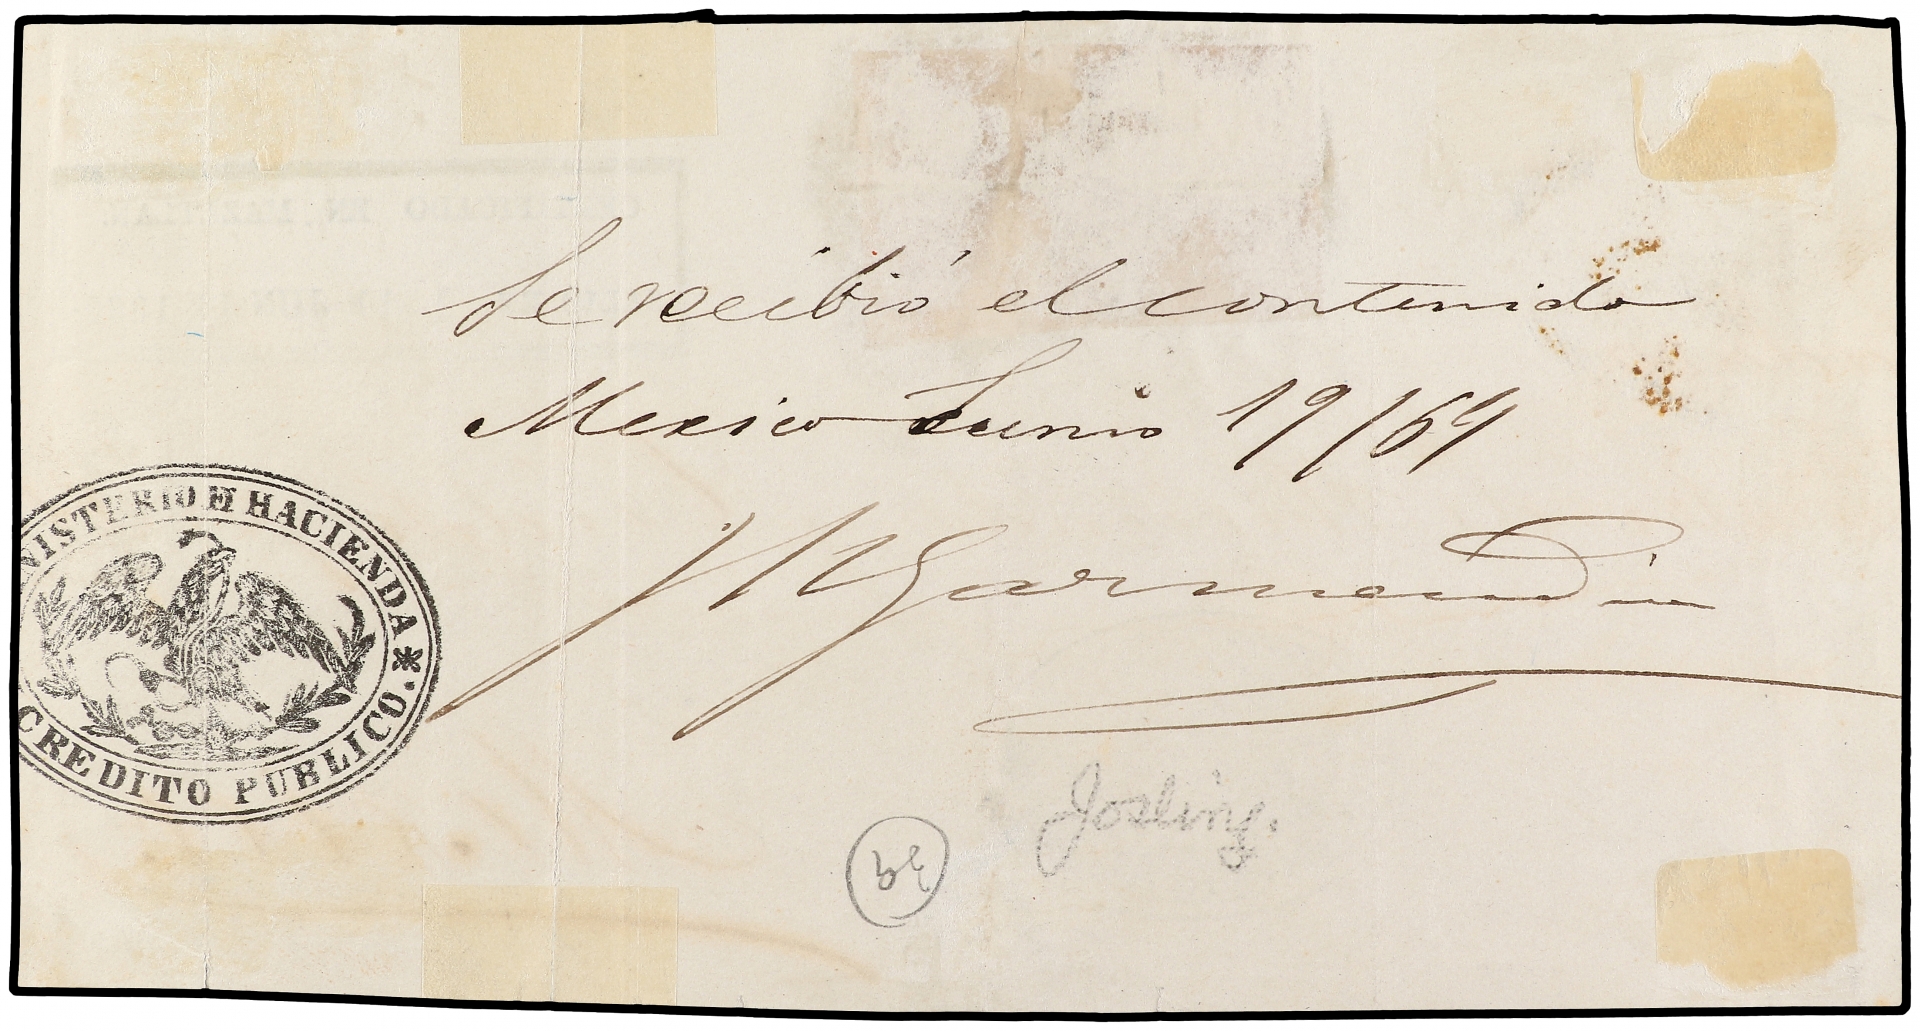 Se recibió el contenido
Mexico Junio 19/64
Garmendia
NISTERIO DE HACIENDA
CREDITO PUBLICO.
Josling.